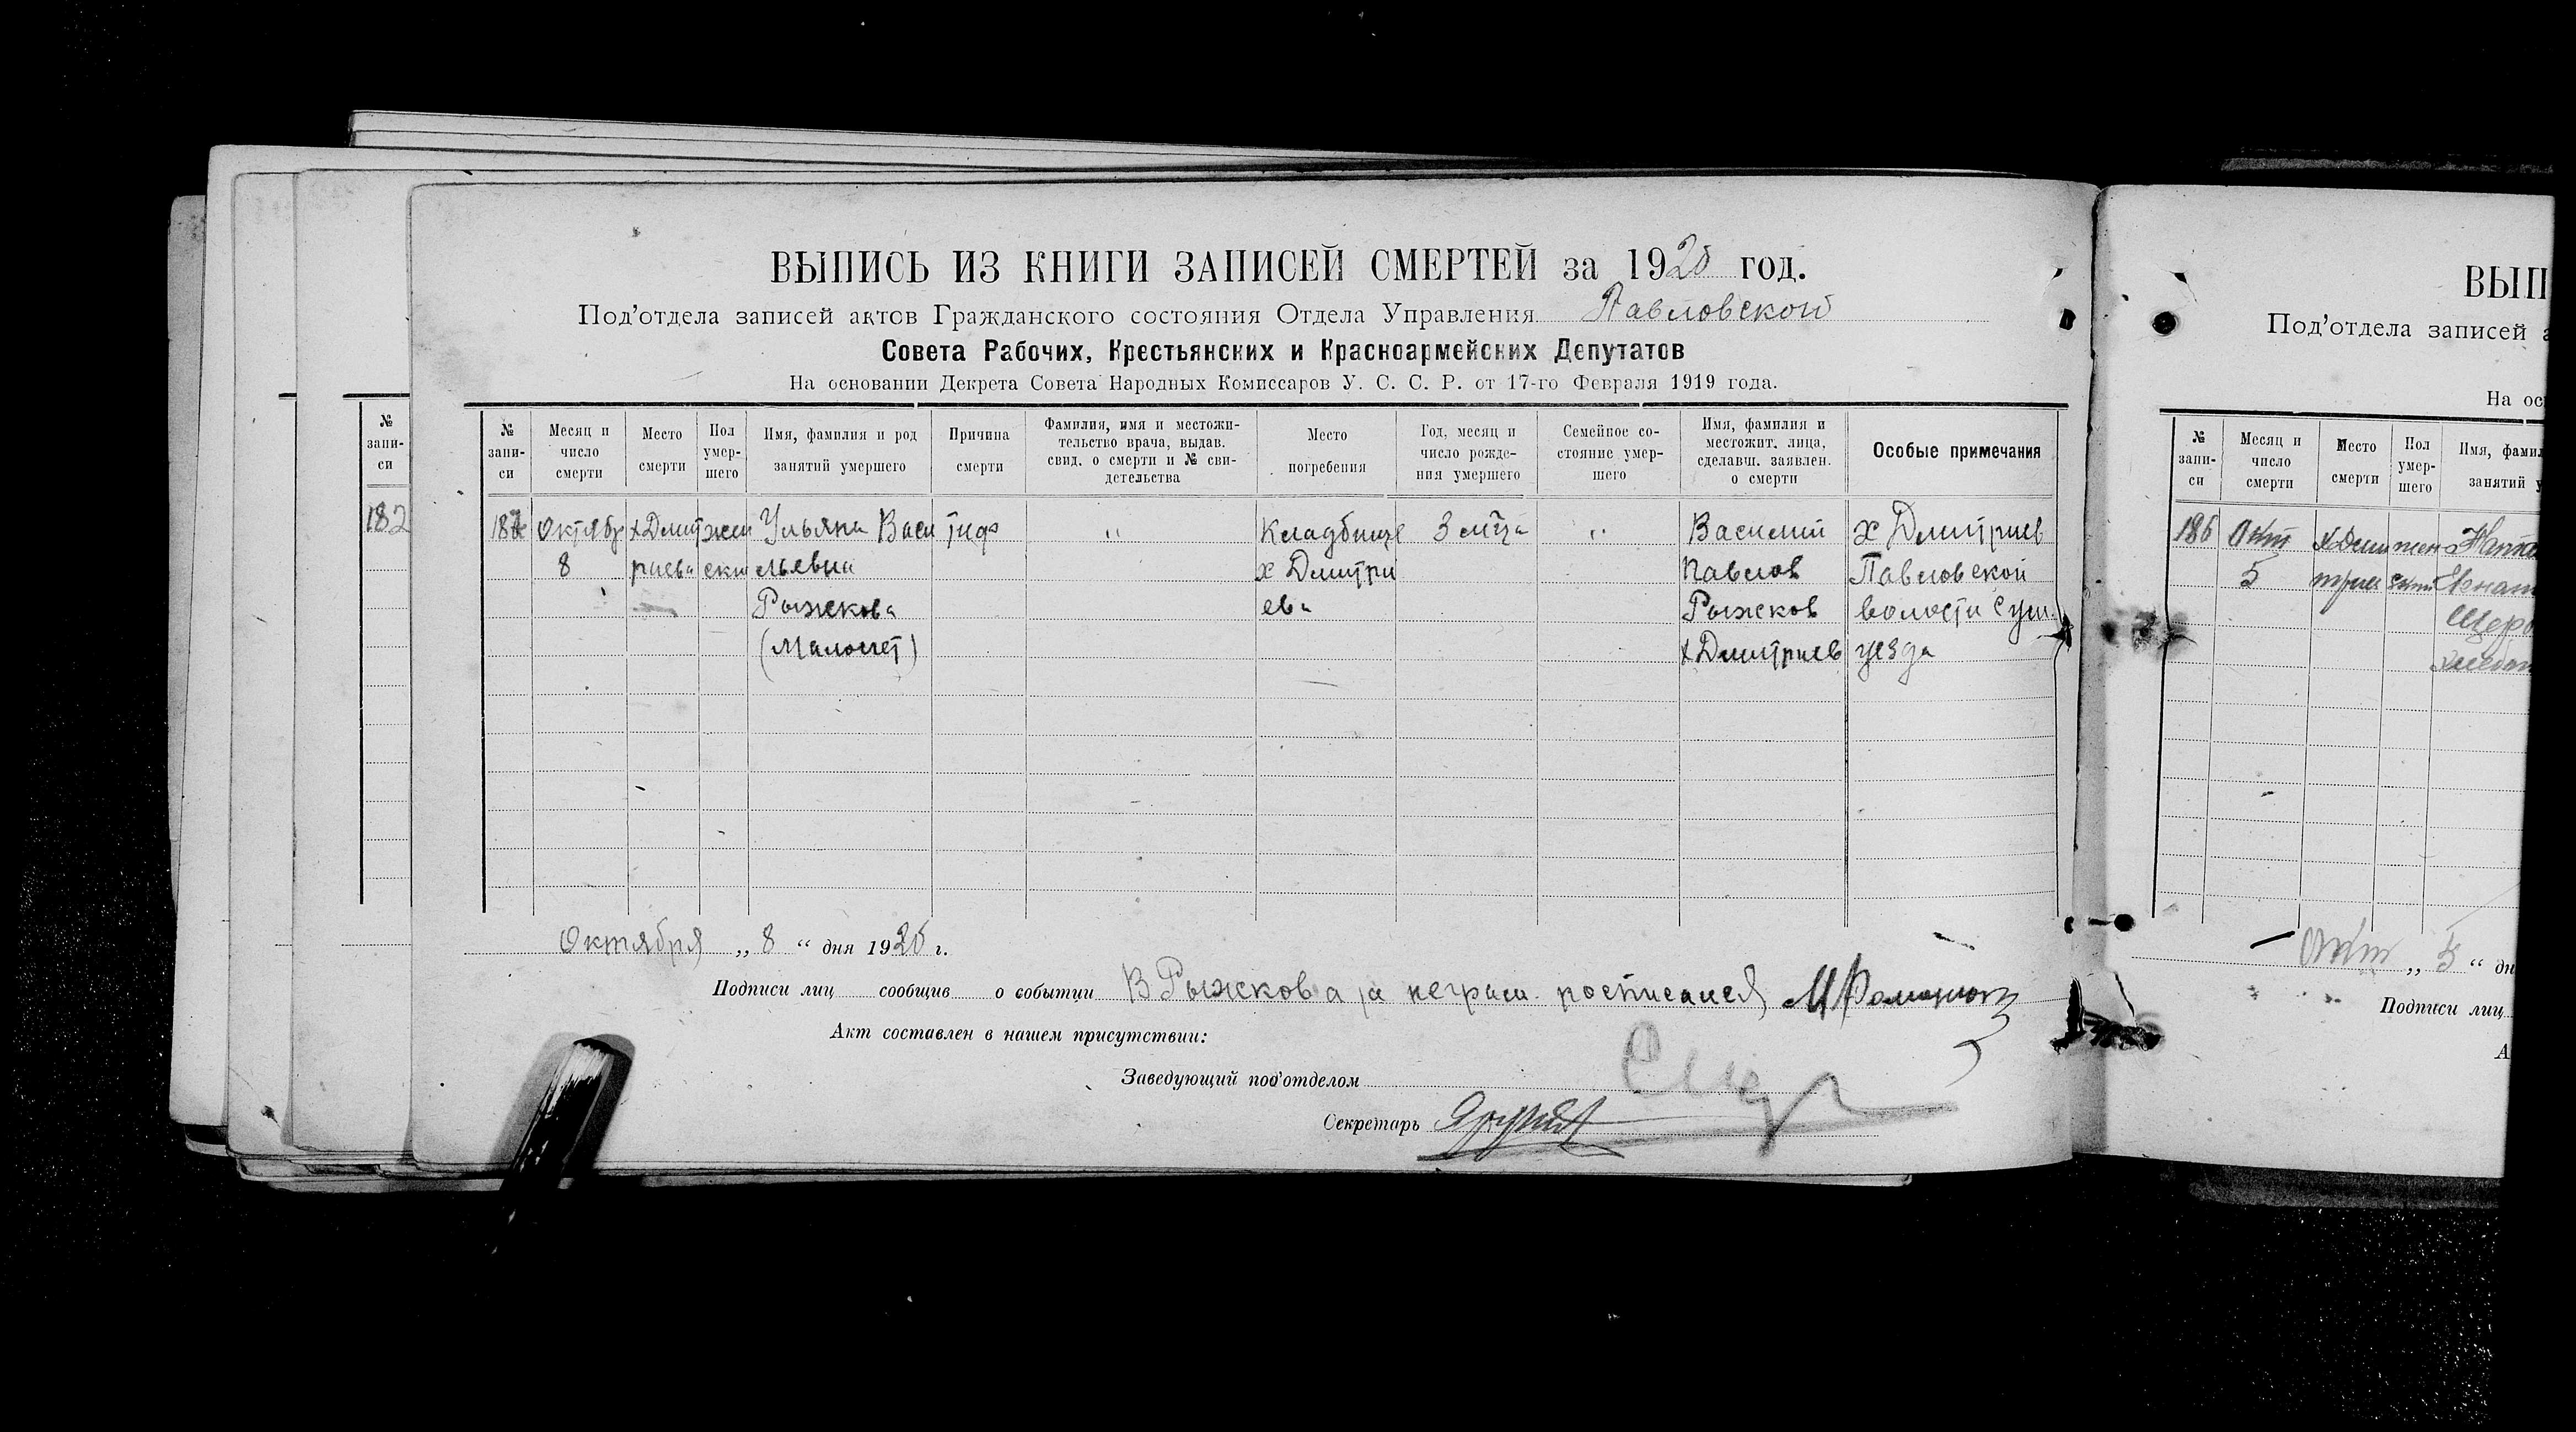 ВЫПИСЬ ИЗ КНИГИ ЗАПИСЕЙ СМЕРТЕЙ за 1920 год.
Под’отдела записей актов Гражданского состояния Отдела Управления Павловской
Совета Рабочих, Крестьянских и Красноармейских Депутатов
На основании Декрета Совета Народных Комиссаров У. С. С. Р. от 17-го Февраля 1919 года.
№ запи-си
Месяц и число смерти
Место смерти
Пол умер-шего
Имя, фамилия и род занятий умершего
Причина смерти
Фамилия, имя и местожи-тельство врача, выдав. свид. о смерти и № сви-детельства
Место погребения
Год, месяц и число рожде-ния умершего
Семейное со-стояние умер-шего
Имя, фамилия и местожит. лица, сделавш. заявлен. о смерти
Особые примечания
Октябр 8
х Дмит риева
жен ски
Ульяна Васи льевна Рыжкова (Малолет)
тиф
"
Кладбище х Дмитри ева
3 м-ца
"
Василий Павлов Рыжков х Дмитриев
х Дмитриев Павловской волости Сум. уезда
Октября „ 8 “ дня 1920 г.
Подписи лиц сообщив о событии В Рыжкова за неграм. росписался
Акт составлен в нашем присутствии:
Заведующий под’отделом
Секретарь
№ запи-си
182
ВЫП
Под’отдела записей
На ос
№ запи-си
Месяц и число смерти
Место смерти
Пол умер-шего
Имя, фамил
занятий у
186
Окт 5
Окт „ 5 “ дн
Подписи лиц
А